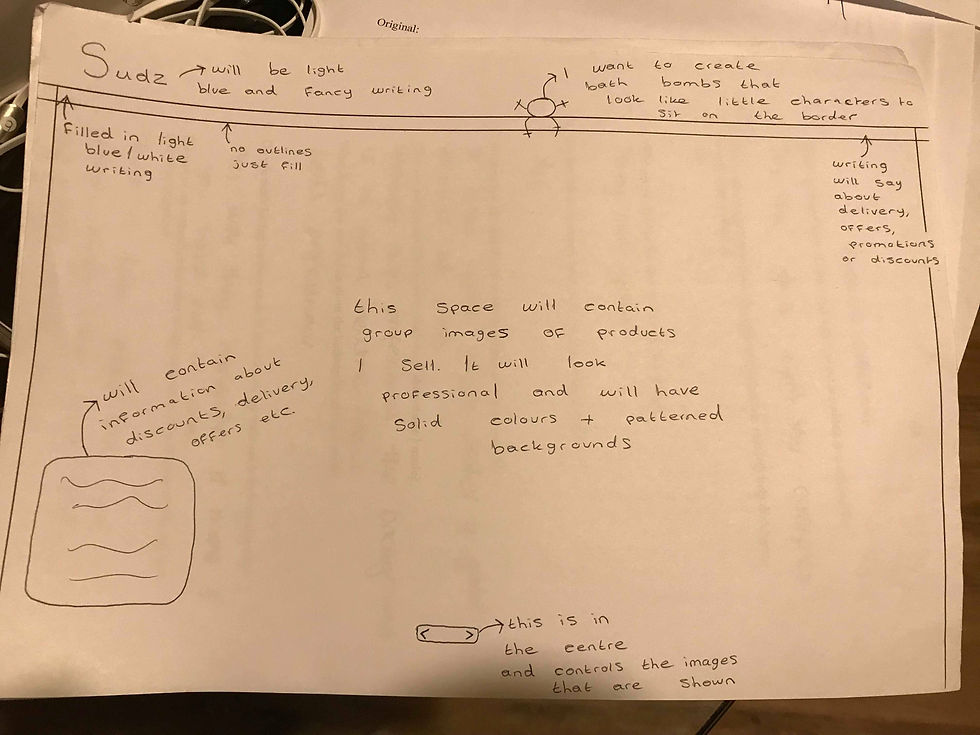 Original:
Sudz
will be light
blue and fancy writing
I want to create
bath bombs that
look like little characters to
sit on the border
filled in light
blue/white
writing
no outlines
just fill
writing
will say
about
delivery,
offers,
promotions
or discounts
this space will contain
group images of products
I sell. It will look
professional and will have
solid colours + patterned
backgrounds
will contain
information about
discounts, delivery,
offers etc.
< >
this is in
the centre
and controls the images
that are shown